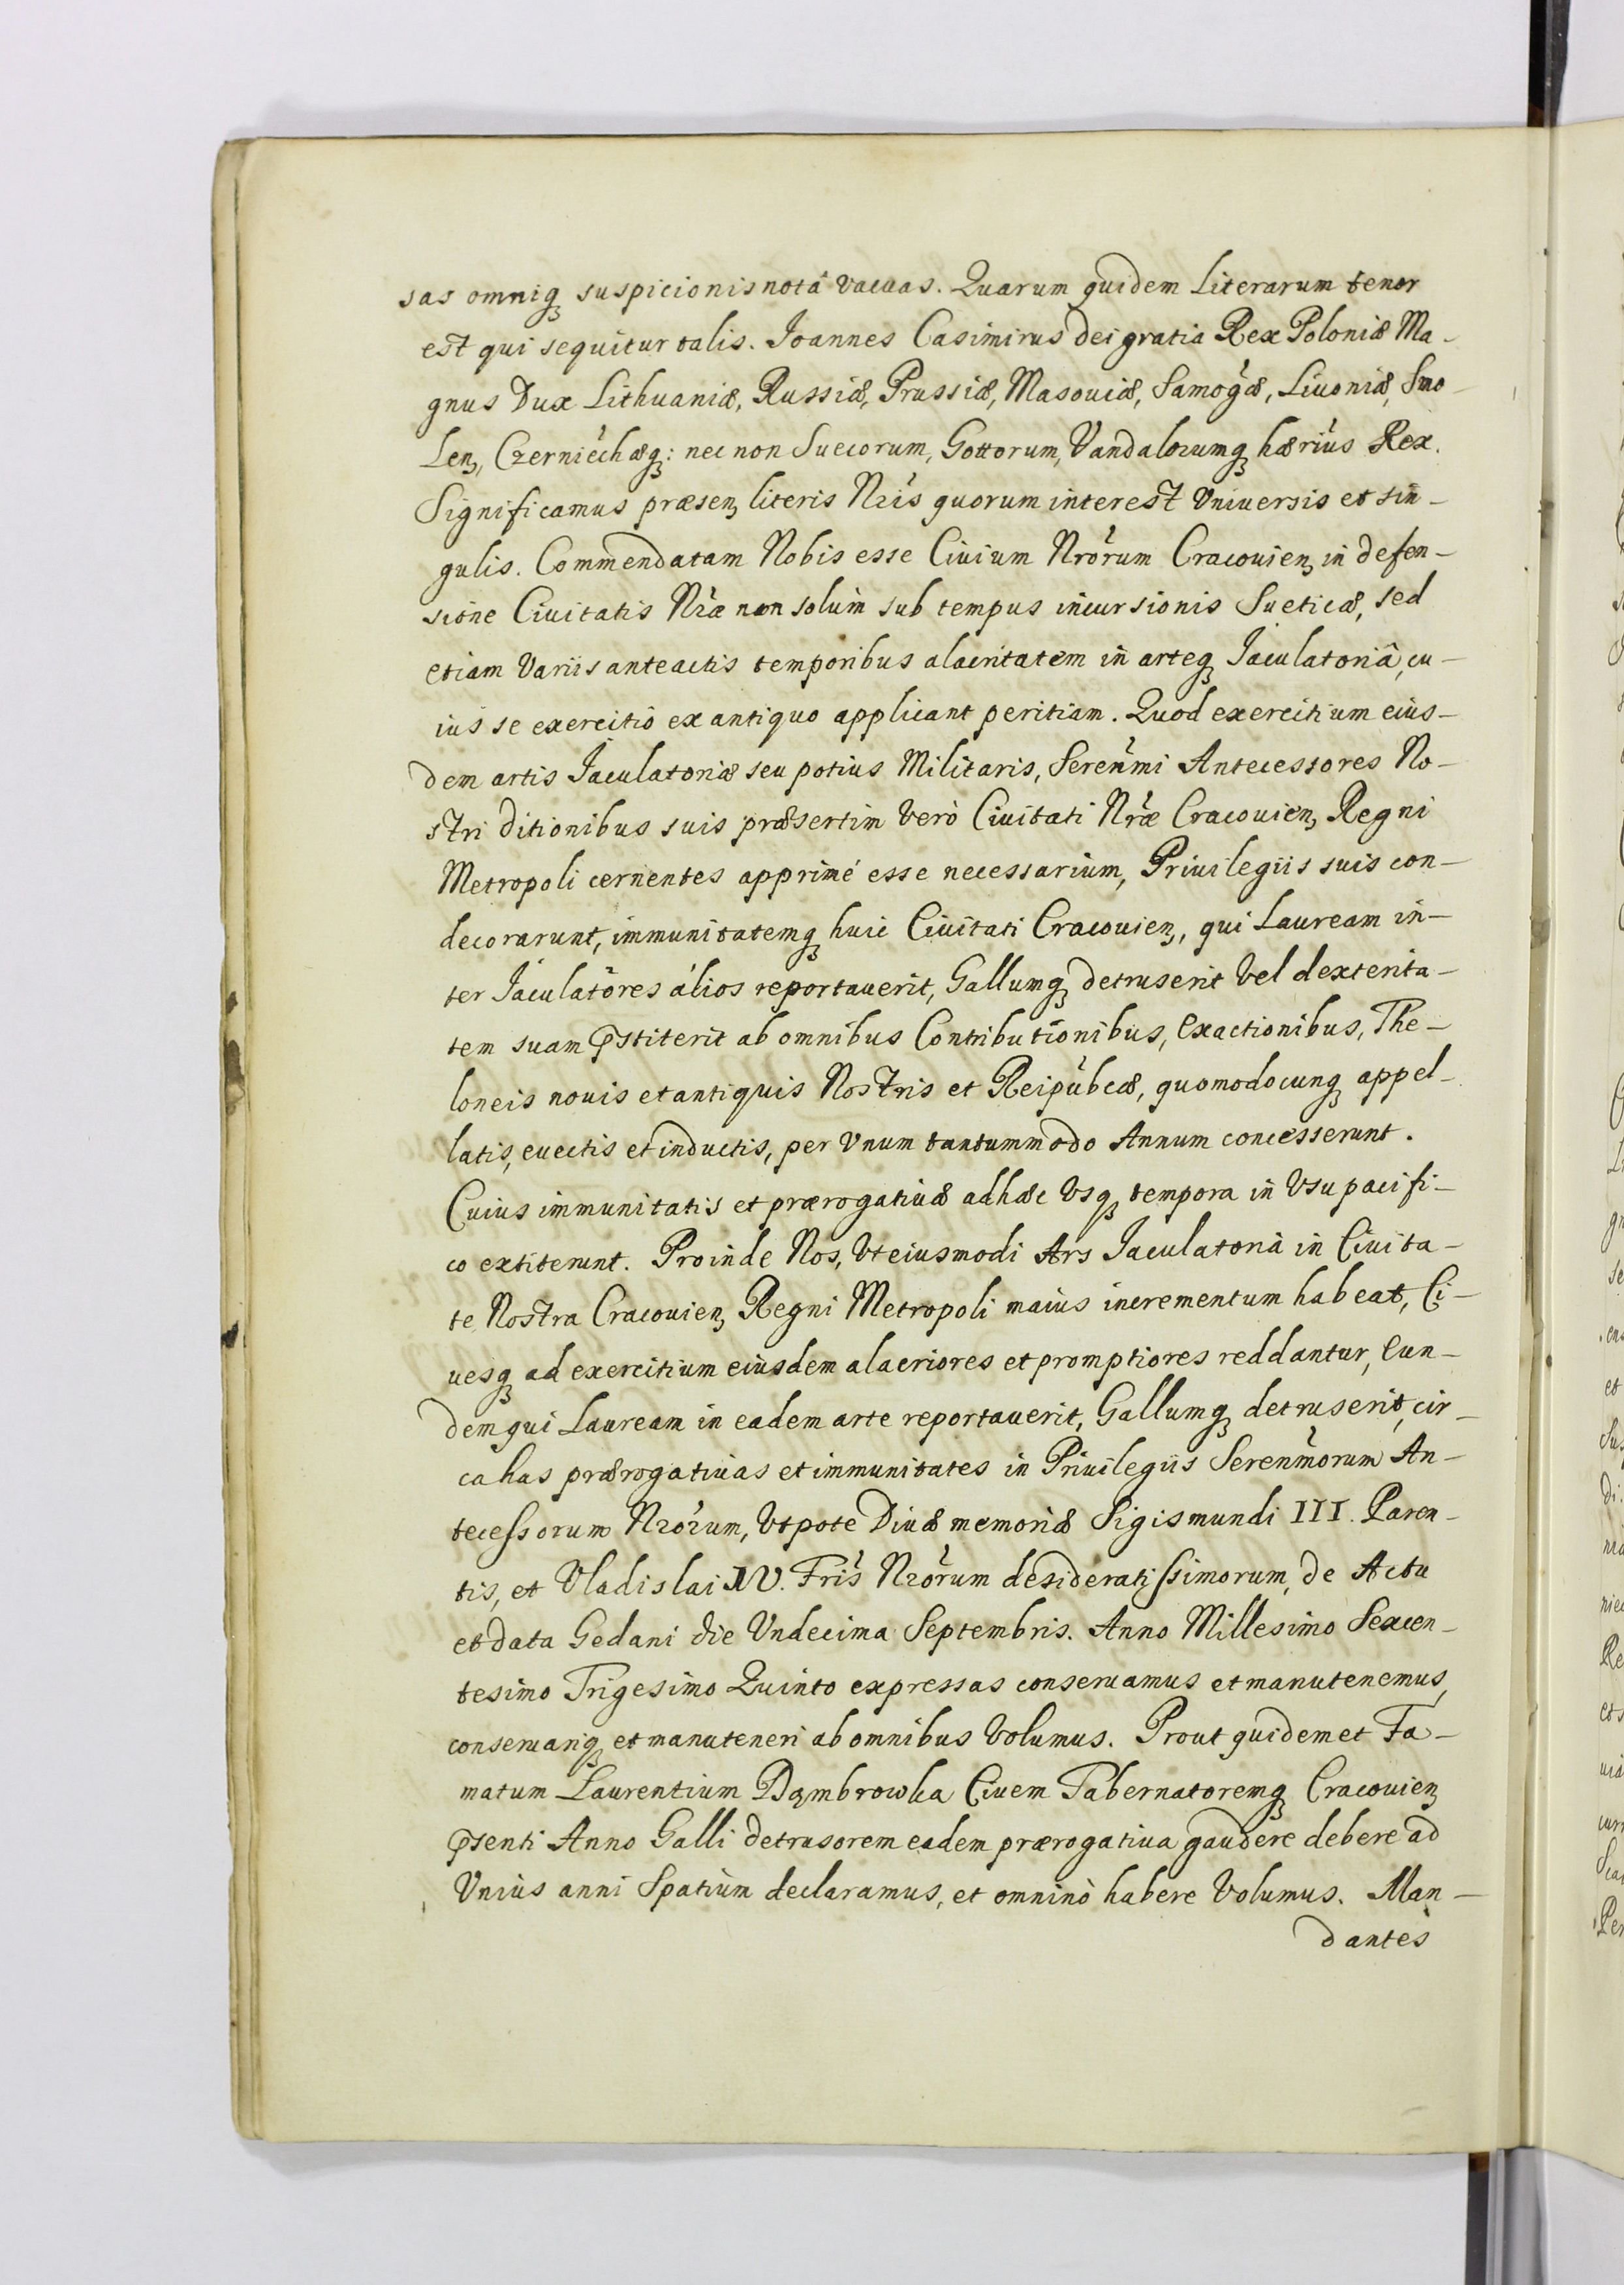 sas omniq; suspicionis notâ vacuas. Quarum quidem Literarum tenor
est qui sequitur talis. Joannes Casimirus dei gratia Rex Poloniæ Ma-
gnus Dux Lithuaniæ, Russiæ, Prussiæ, Masouiæ, Samogæ, Liuoniæ, Smo-
Len, Czerniechæq: nec non Suecorum, Gottorum, Vandalorumq; hærius Rex.
Significamus præsen, literis Nris quorum interest Vniuersis et sin-
gulis. Commendatam Nobis esse Ciuium Nrorum Cracouien, in defen-
sione Ciuitatis Nræ non solum sub tempus incursionis Sueticæ, sed
etiam Variis anteactis temporibus alacritatem in arteq; Jaculatoriâ, cu-
ius se exercitio ex antiquo applicant peritiam. Quod exercitium eius-
dem artis Jaculatoriæ seu potius Militaris, Serenmi Antecessores No-
stri ditionibus suis præsertim verò Ciuitati Nræ Cracouien, Regni
Metropoli cernentes apprimé esse necessarium, Priuilegiis suis con-
decorarunt, immunitatemq; huic Ciuitati Cracouien, qui Lauream in-
ter Jaculatores alios reportauerit, Gallumq; detruserit Vel dexterita-
tem suam pstiterit ab omnibus Contributionibus, Exactionibus, The-
loneis nouis et antiquis Nostris et Reipubcæ, quomodocunq; appel-
latis, euectis et inductis, per Vnum tantummodo Annum concesserunt.
Cuius immunitatis et prærogatiuæ adhæc Vsq; tempora in Vsu pacifi-
co extiterunt. Proinde Nos, Vt eiusmodi Ars Jaculatoria in Ciuita-
te Nostra Cracouien, Regni Metropoli maius incrementum habeat, Ci-
uesq; ad exercitium eiusdem alacriores et promptiores reddantur, Eun-
dem qui Lauream in eadem arte reportauerit, Gallumq; detruserit, cir-
ca has prærogatiuas et immunitates in Priuilegiis Serenmorum An-
tecessorum Nrorum, Vtpote Diuæ memoriæ Sigismundi III. Paren-
tis, et Vladislai IV. Fris Nrorum desideratissimorum, de Actu
et data Gedani die Vndecima Septembris. Anno Millesimo Sexcen-
tesimo Trigesimo Quinto expressas conseruamus et manutenemus,
conseruariq; et manuteneri ab omnibus Volumus. Prout quidem et Fa-
matum Laurentium Dąmbrowka Ciuem Tabernatoremq; Cracouien,
psenti Anno Galli detrusorem eadem prærogatiua gaudere debere ad
Vnius anni Spatium declaramus, et omninò habere Volumus. Man-
dantes